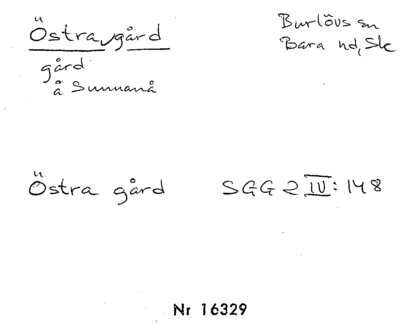 Östra gård
Burlövs sn
Bara hd, Sk
gård
å Sunnanå
Östra gård SGG 2 IV: 148
Nr 16329